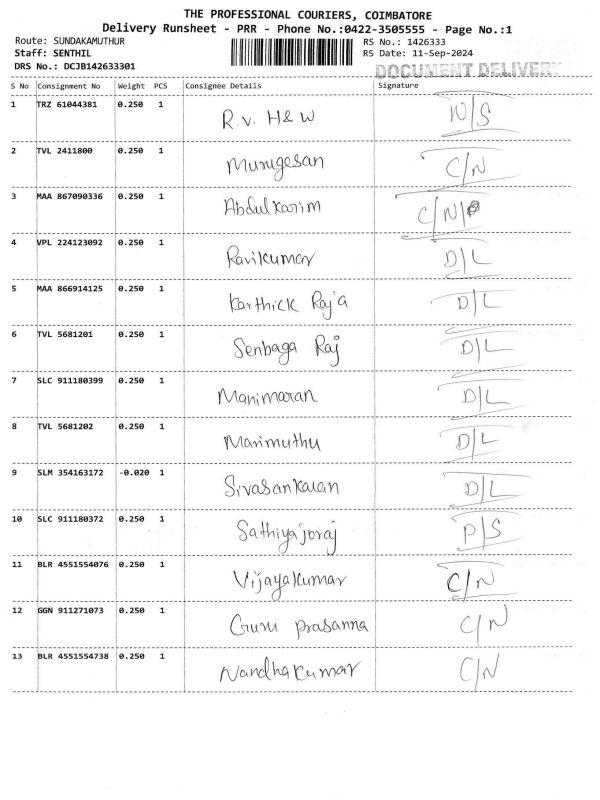 THE PROFESSIONAL COURIERS, COIMBATORE
Delivery Runsheet - PRR - Phone No.:0422-3505555 - Page No.:1
Route: SUNDAKAMUTHUR RS No.: 1426333
Staff: SENTHIL RS Date: 11-Sep-2024
DRS No.: DCJB142633301 DOCUMENT DELIVERY
S No Consignment No Weight PCS Consignee Details Signature
1 TRZ 61044381 0.250 1 R.V. H&W N/S
2 TVL 2411800 0.250 1 Murugesan C/N
3 MAA 867090336 0.250 1 Abdulkarim C/N/
4 VPL 224123092 0.250 1 Ravikumar D/L
5 MAA 866914125 0.250 1 Karthick Raja D/L
6 TVL 5681201 0.250 1 Senbaga Raj D/L
7 SLC 911180399 0.250 1 Manimaran D/L
8 TVL 5681202 0.250 1 Marimuthu D/L
9 SLM 354163172 -0.020 1 Sivasankaran D/L
10 SLC 911180372 0.250 1 Sathiyajoraj P/S
11 BLR 4551554076 0.250 1 Vijayakumar C/N
12 GGN 911271073 0.250 1 Guru prasanna C/N
13 BLR 4551554738 0.250 1 Nandhakumar C/N